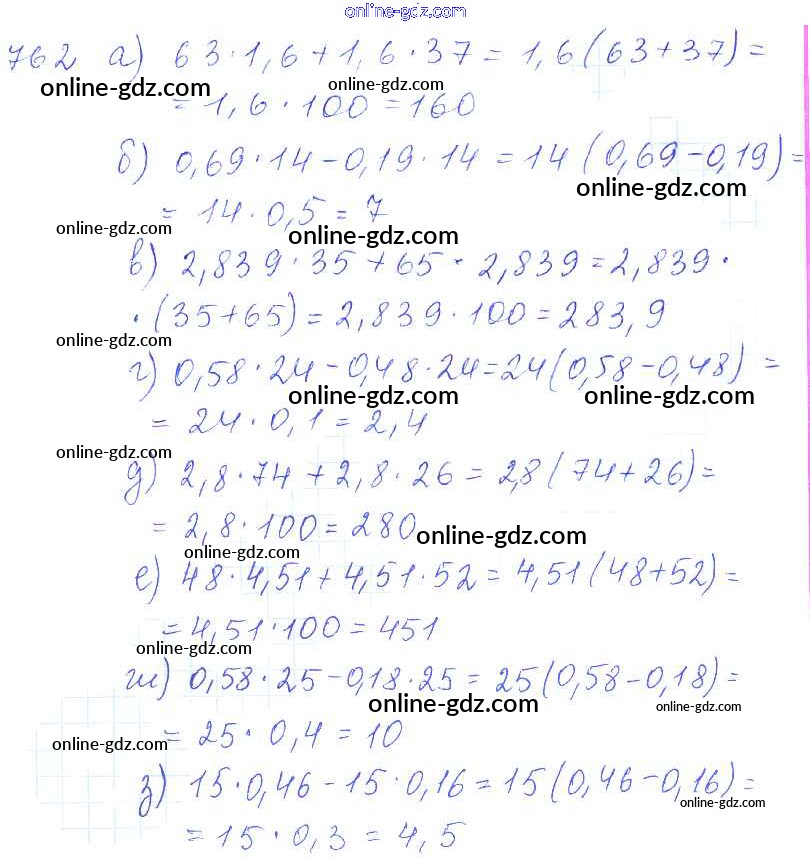 online-gdz.com
762 а) 63 · 1,6 + 1,6 · 37 = 1,6 (63 + 37) =
online-gdz.com online-gdz.com
= 1,6 · 100 = 160
б) 0,69 · 14 - 0,19 · 14 = 14 (0,69 - 0,19) =
online-gdz.com
= 14 · 0,5 = 7
online-gdz.com online-gdz.com
в) 2,839 · 35 + 65 · 2,839 = 2,839 ·
· (35 + 65) = 2,839 · 100 = 283,9
online-gdz.com
г) 0,58 · 24 - 0,48 · 24 = 24 (0,58 - 0,48) =
online-gdz.com online-gdz.com
= 24 · 0,1 = 2,4
online-gdz.com
д) 2,8 · 74 + 2,8 · 26 = 2,8 (74 + 26) =
= 2,8 · 100 = 280
online-gdz.com
online-gdz.com
е) 48 · 4,51 + 4,51 · 52 = 4,51 (48 + 52) =
= 4,51 · 100 = 451
online-gdz.com
ж) 0,58 · 25 - 0,18 · 25 = 25 (0,58 - 0,18) =
online-gdz.com online-gdz.com
= 25 · 0,4 = 10
online-gdz.com
з) 15 · 0,46 - 15 · 0,16 = 15 (0,46 - 0,16) =
online-gdz.com
= 15 · 0,3 = 4,5